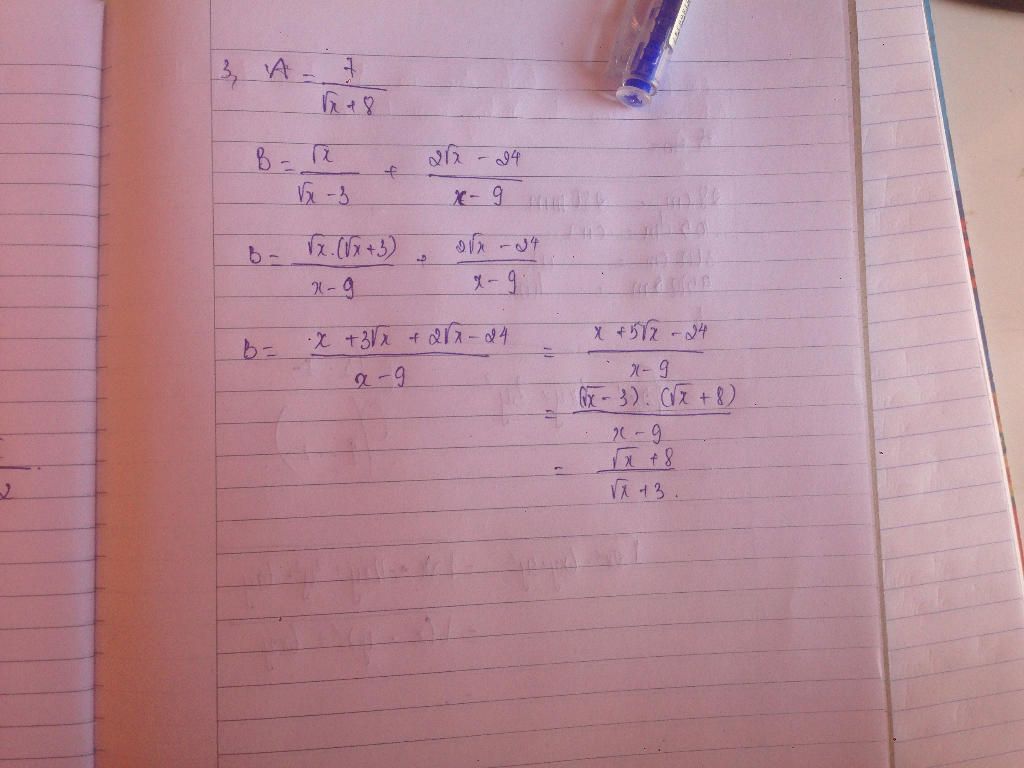 3, A = 7/(√x + 8)
B = √x/(√x - 3) + (2√x - 24)/(x - 9)
B = √x.(√x + 3)/(x - 9) + (2√x - 24)/(x - 9)
B = (x + 3√x + 2√x - 24)/(x - 9) = (x + 5√x - 24)/(x - 9)
= (√x - 3).(√x + 8)/(x - 9)
= (√x + 8)/(√x + 3).
2